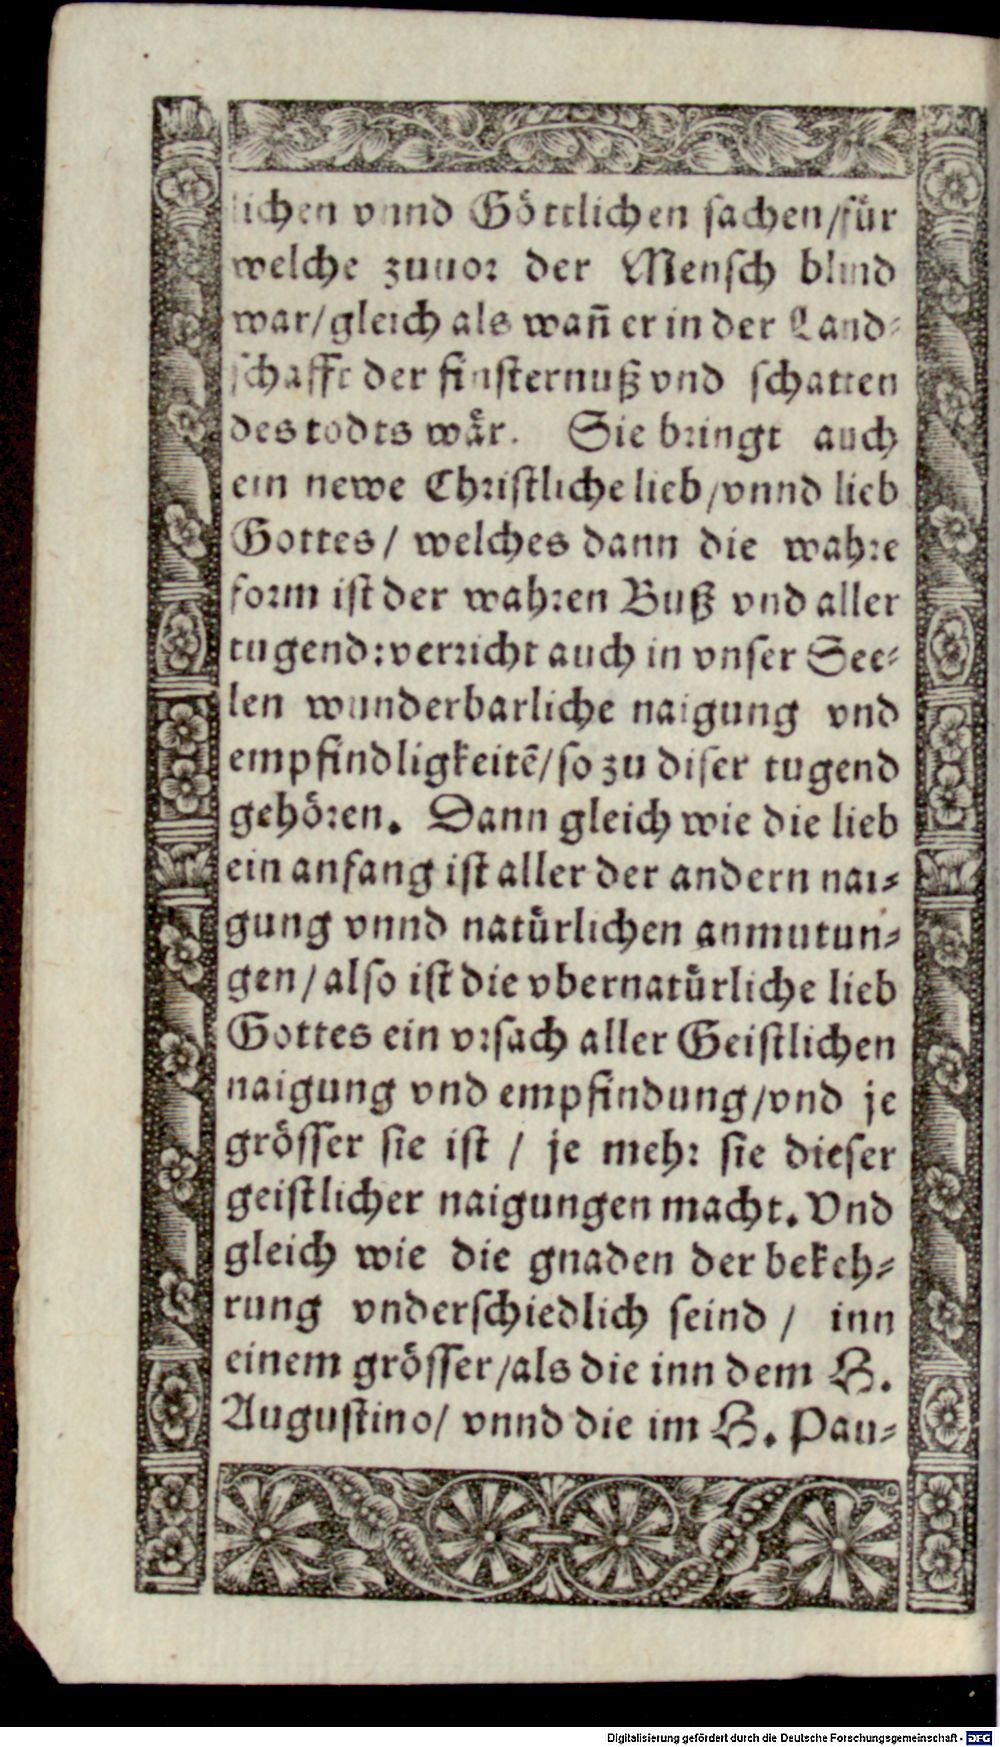 lichen vnnd Göttlichen sachen/für
welche zuuor der Mensch blind
war/gleich als wañ er in der Land⸗
schafft der finsternuß vnd schatten
des todts wår. Sie bringt auch
ein newe Christliche lieb/vnnd lieb
Gottes/ welches dann die wahre
form ist der wahren Buß vnd aller
tugend: verricht auch in vnser See⸗
len wunderbarliche naigung vnd
empfindligkeitē/so zu diser tugend
gehören. Dann gleich wie die lieb
ein anfang ist aller der andern nai⸗
gung vnnd natůrlichen anmutun⸗
gen/also ist die vbernatůrliche lieb
Gottes ein vrsach aller Geistlichen
naigung vnd empfindung/vnd je
grösser sie ist / je mehr sie dieser
geistlicher naigungen macht. Vnd
gleich wie die gnaden der bekeh⸗
rung vnderschiedlich seind / inn
einem grösser/als die inn dem H.
Augustino/ vnnd die im H. Pau⸗
Digitalisierung gefördert durch die Deutsche Forschungsgemeinschaft - DFG